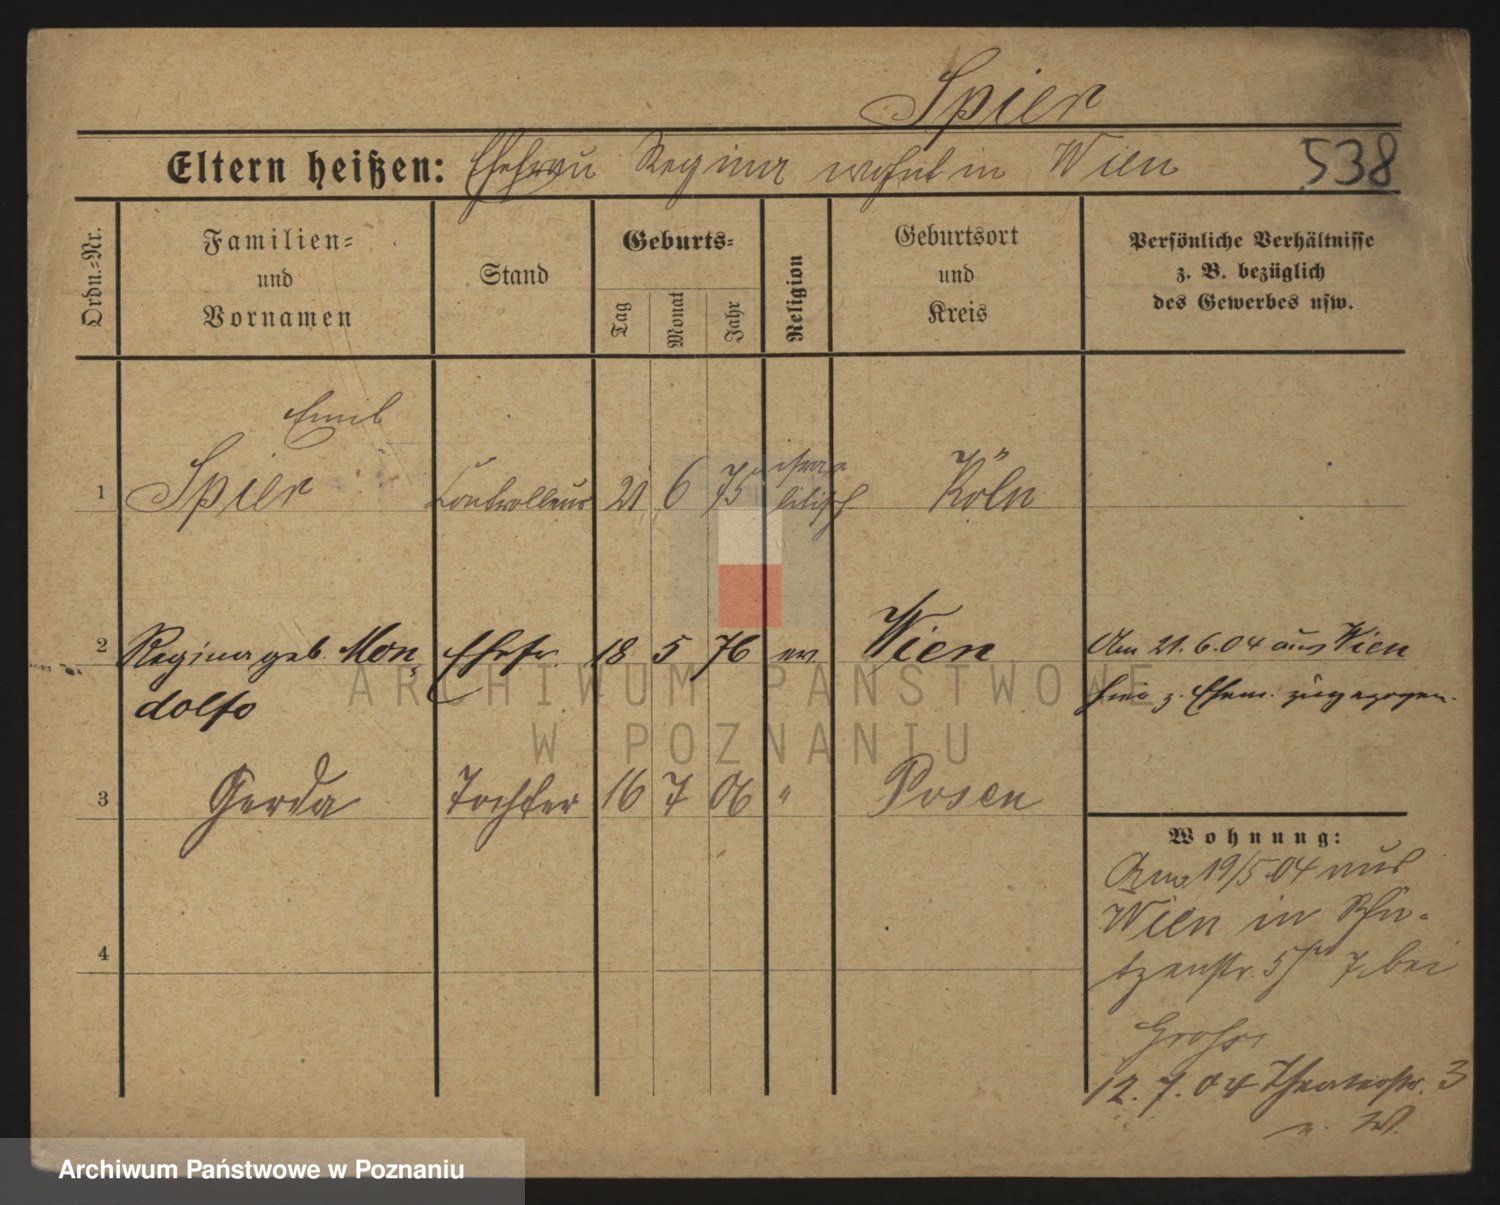 Spier
Eltern heißen: Ehefrau Regina wohnt in Wien 538
Ordn.-Nr.
Familien-
und
Vornamen
Stand
Geburts-
Tag
Monat
Jahr
Religion
Geburtsort
und
Kreis
Persönliche Verhältnisse
z. B. bezüglich
des Gewerbes usw.
Emil
1 Spier Controlleur 21 6 75 israe
litisch Köln
2 Regina geb. Mon Ehefr. 18 5 76 ev. Wien Am 21.6.04 aus Wien
dolfo hier z. Ehem. zugezogen.
3 Gerda Tochter 16 7 06 " Posen
Wohnung:
Am 19/5 04 aus
Wien in Schü-
tzenstr. 5 bei
4
Gross
12. 7. 04 Theaterstr. 3
n. W.
ARCHIWUM PAŃSTWOWE
W POZNANIU
Archiwum Państwowe w Poznaniu